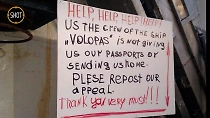 SHOT
HELP, HELP, HELP, HELP!
US THE CREW OF THE SHIP
„VOLOPAS" IS NOT GIVING
US OUR PASSPORTS OR
SENDING US HOME.
PLESE REPOST OUR
APPEAL.
THANK YOU VERY MUST!!!